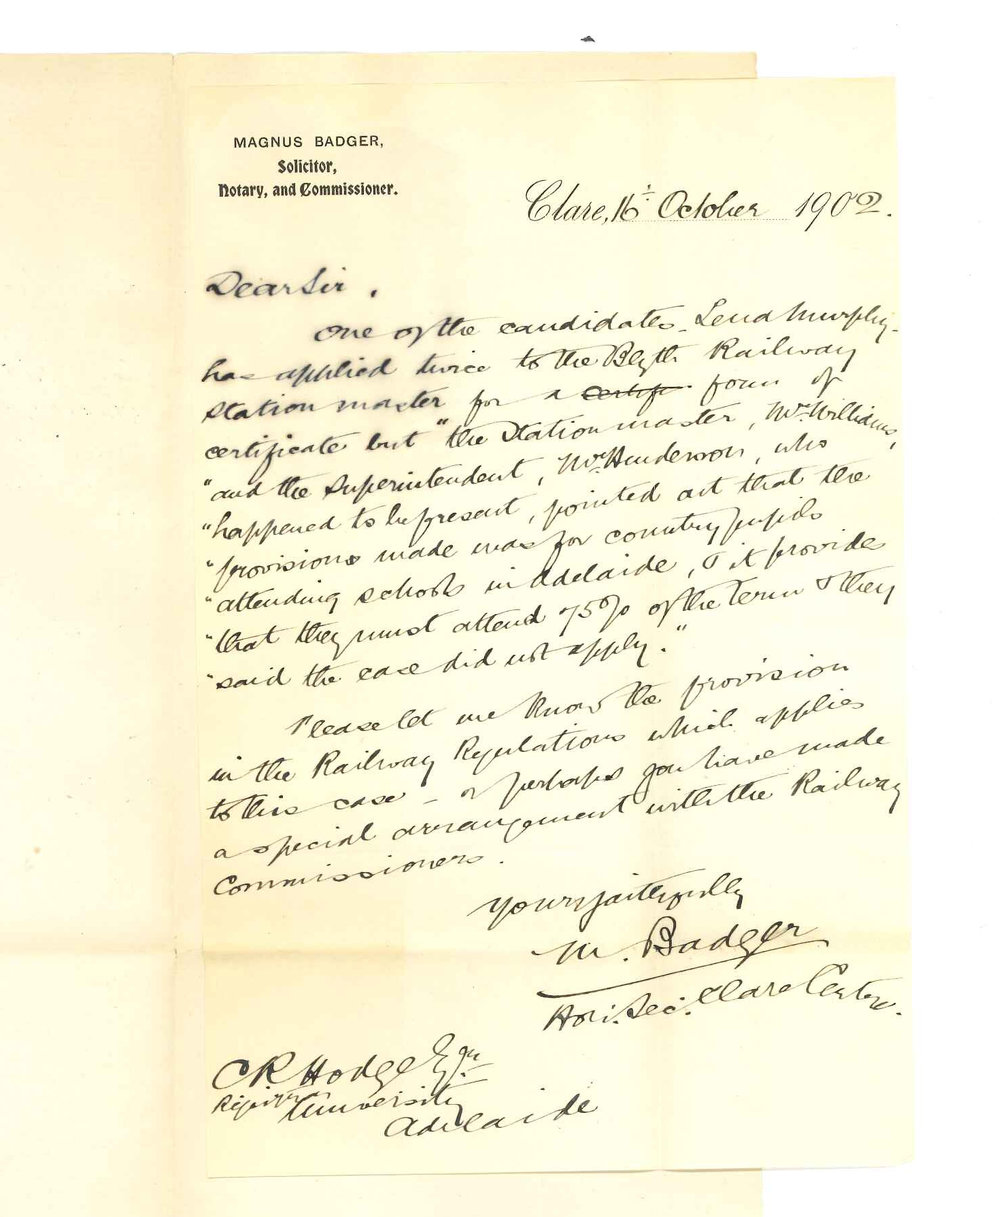 MAGNUS BADGER,
Solicitor,
Notary, and Commissioner.
Clare, 16th October 1902.
Dear Sir,
One of the candidates - Lena Murphy -
has applied twice to the Blyth Railway
Station master for a certif form of
certificate but "the Station master, Mr. Williams,
"and the Superintendent, Mr. Henderson, who
"happened to be present, pointed out that the
"provisions made was for country pupils
"attending schools in Adelaide, & it provide
"that they must attend 75% of the Term & they
"said the case did not apply."
Please let me know the provision
in the Railway Regulations which applies
to this case - or perhaps you have made
a special arrangement with the Railway
Commissioners.
Yours faithfully
M. Badger
Hon. Sec. Clare Centre.
C R Hodge Esqre
Registrar
University
Adelaide